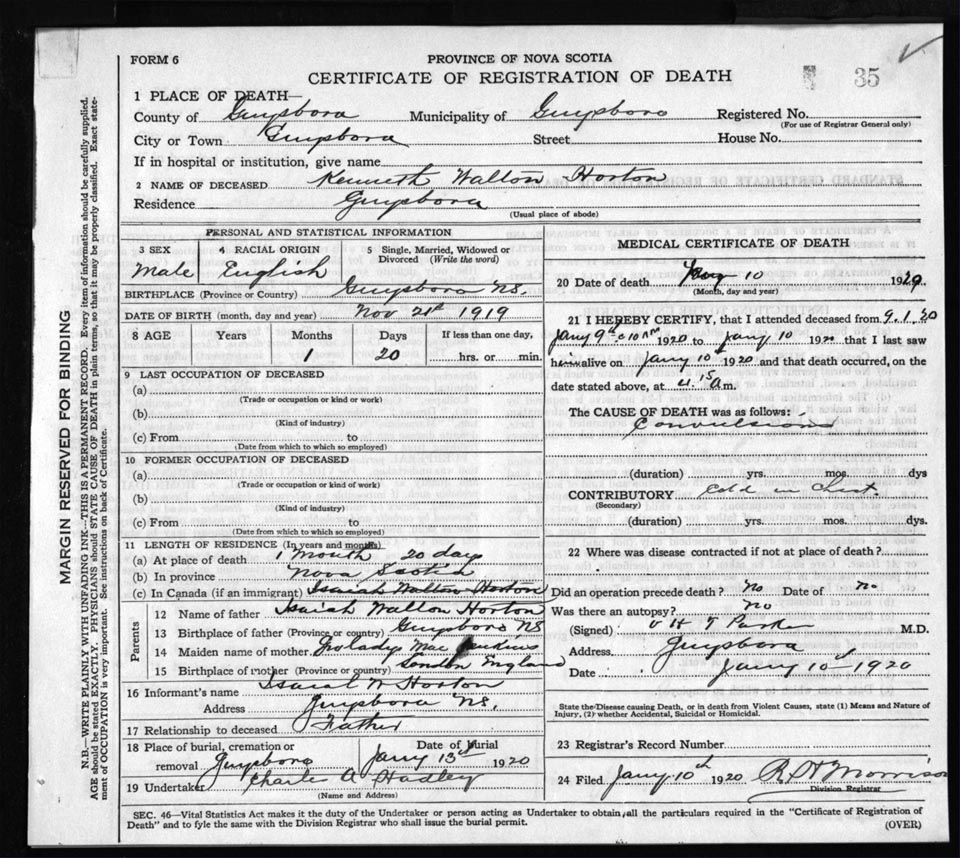 FORM 6
PROVINCE OF NOVA SCOTIA
CERTIFICATE OF REGISTRATION OF DEATH
35
1 PLACE OF DEATH—
County of Guysboro Municipality of Guysboro Registered No.
(For use of Registrar General only)
City or Town Guysboro Street House No.
If in hospital or institution, give name
2 NAME OF DECEASED Kenneth Walton Horton
Residence Guysboro
(Usual place of abode)
PERSONAL AND STATISTICAL INFORMATION
3 SEX 4 RACIAL ORIGIN 5 Single, Married, Widowed or Divorced (Write the word)
Male English
BIRTHPLACE (Province or Country) Guysboro NS.
DATE OF BIRTH (month, day and year) Nov 21st 1919
8 AGE Years Months Days If less than one day,
1 20 hrs. or min.
9 LAST OCCUPATION OF DECEASED
(a)
(Trade or occupation or kind or work)
(b)
(Kind of industry)
(c) From to
(Date from which to which so employed)
10 FORMER OCCUPATION OF DECEASED
(a)
(Trade or occupation or kind of work)
(b)
(Kind of industry)
(c) From to
(Date from which to which so employed)
11 LENGTH OF RESIDENCE (In years and months)
(a) At place of death 1 Month 20 days
(b) In province Nova Scotia
(c) In Canada (if an immigrant) Isaiah Walton Horton
Parents
12 Name of father Isaiah Walton Horton
13 Birthplace of father (Province or country) Guysboro NS
14 Maiden name of mother Mae
15 Birthplace of mother (Province or country) London England
16 Informant's name Isaiah W Horton
Address Guysboro NS.
17 Relationship to deceased Father
18 Place of burial, cremation or removal Guysboro Date of burial Jany 13th 1920
19 Undertaker Charles A Hadley
(Name and Address)
MEDICAL CERTIFICATE OF DEATH
20 Date of death Jany 10 1920
(Month, day and year)
21 I HEREBY CERTIFY, that I attended deceased from 9.1.20
Jany 9th 1920 to Jany 10 1920 that I last saw
him alive on Jany 10th 1920 and that death occurred, on the
date stated above, at 4.15 a m.
The CAUSE OF DEATH was as follows:
Convulsions
(duration) yrs. mos. dys
CONTRIBUTORY cold in Chest.
(Secondary)
(duration) yrs. mos. dys.
22 Where was disease contracted if not at place of death?
Did an operation precede death? No Date of No.
Was there an autopsy? No
(Signed) Parker M.D.
Address Guysboro
Date Jany 10th 1920
State the Disease causing Death, or in death from Violent Causes, state (1) Means and Nature of
Injury, (2) whether Accidental, Suicidal or Homicidal.
23 Registrar's Record Number
24 Filed Jany 10th 1920 R H Morrison
Division Registrar
SEC. 46—Vital Statistics Act makes it the duty of the Undertaker or person acting as Undertaker to obtain all the particulars required in the "Certificate of Registration of
Death" and to fyle the same with the Division Registrar who shall issue the burial permit.
(OVER)
MARGIN RESERVED FOR BINDING
N.B.—WRITE PLAINLY WITH UNFADING INK—THIS IS A PERMANENT RECORD. Every item of information should be carefully supplied.
AGE should be stated EXACTLY. PHYSICIANS should STATE CAUSE OF DEATH in plain terms, so that it may be properly classified. Exact state-
ment of OCCUPATION is very important. See instructions on back of Certificate.